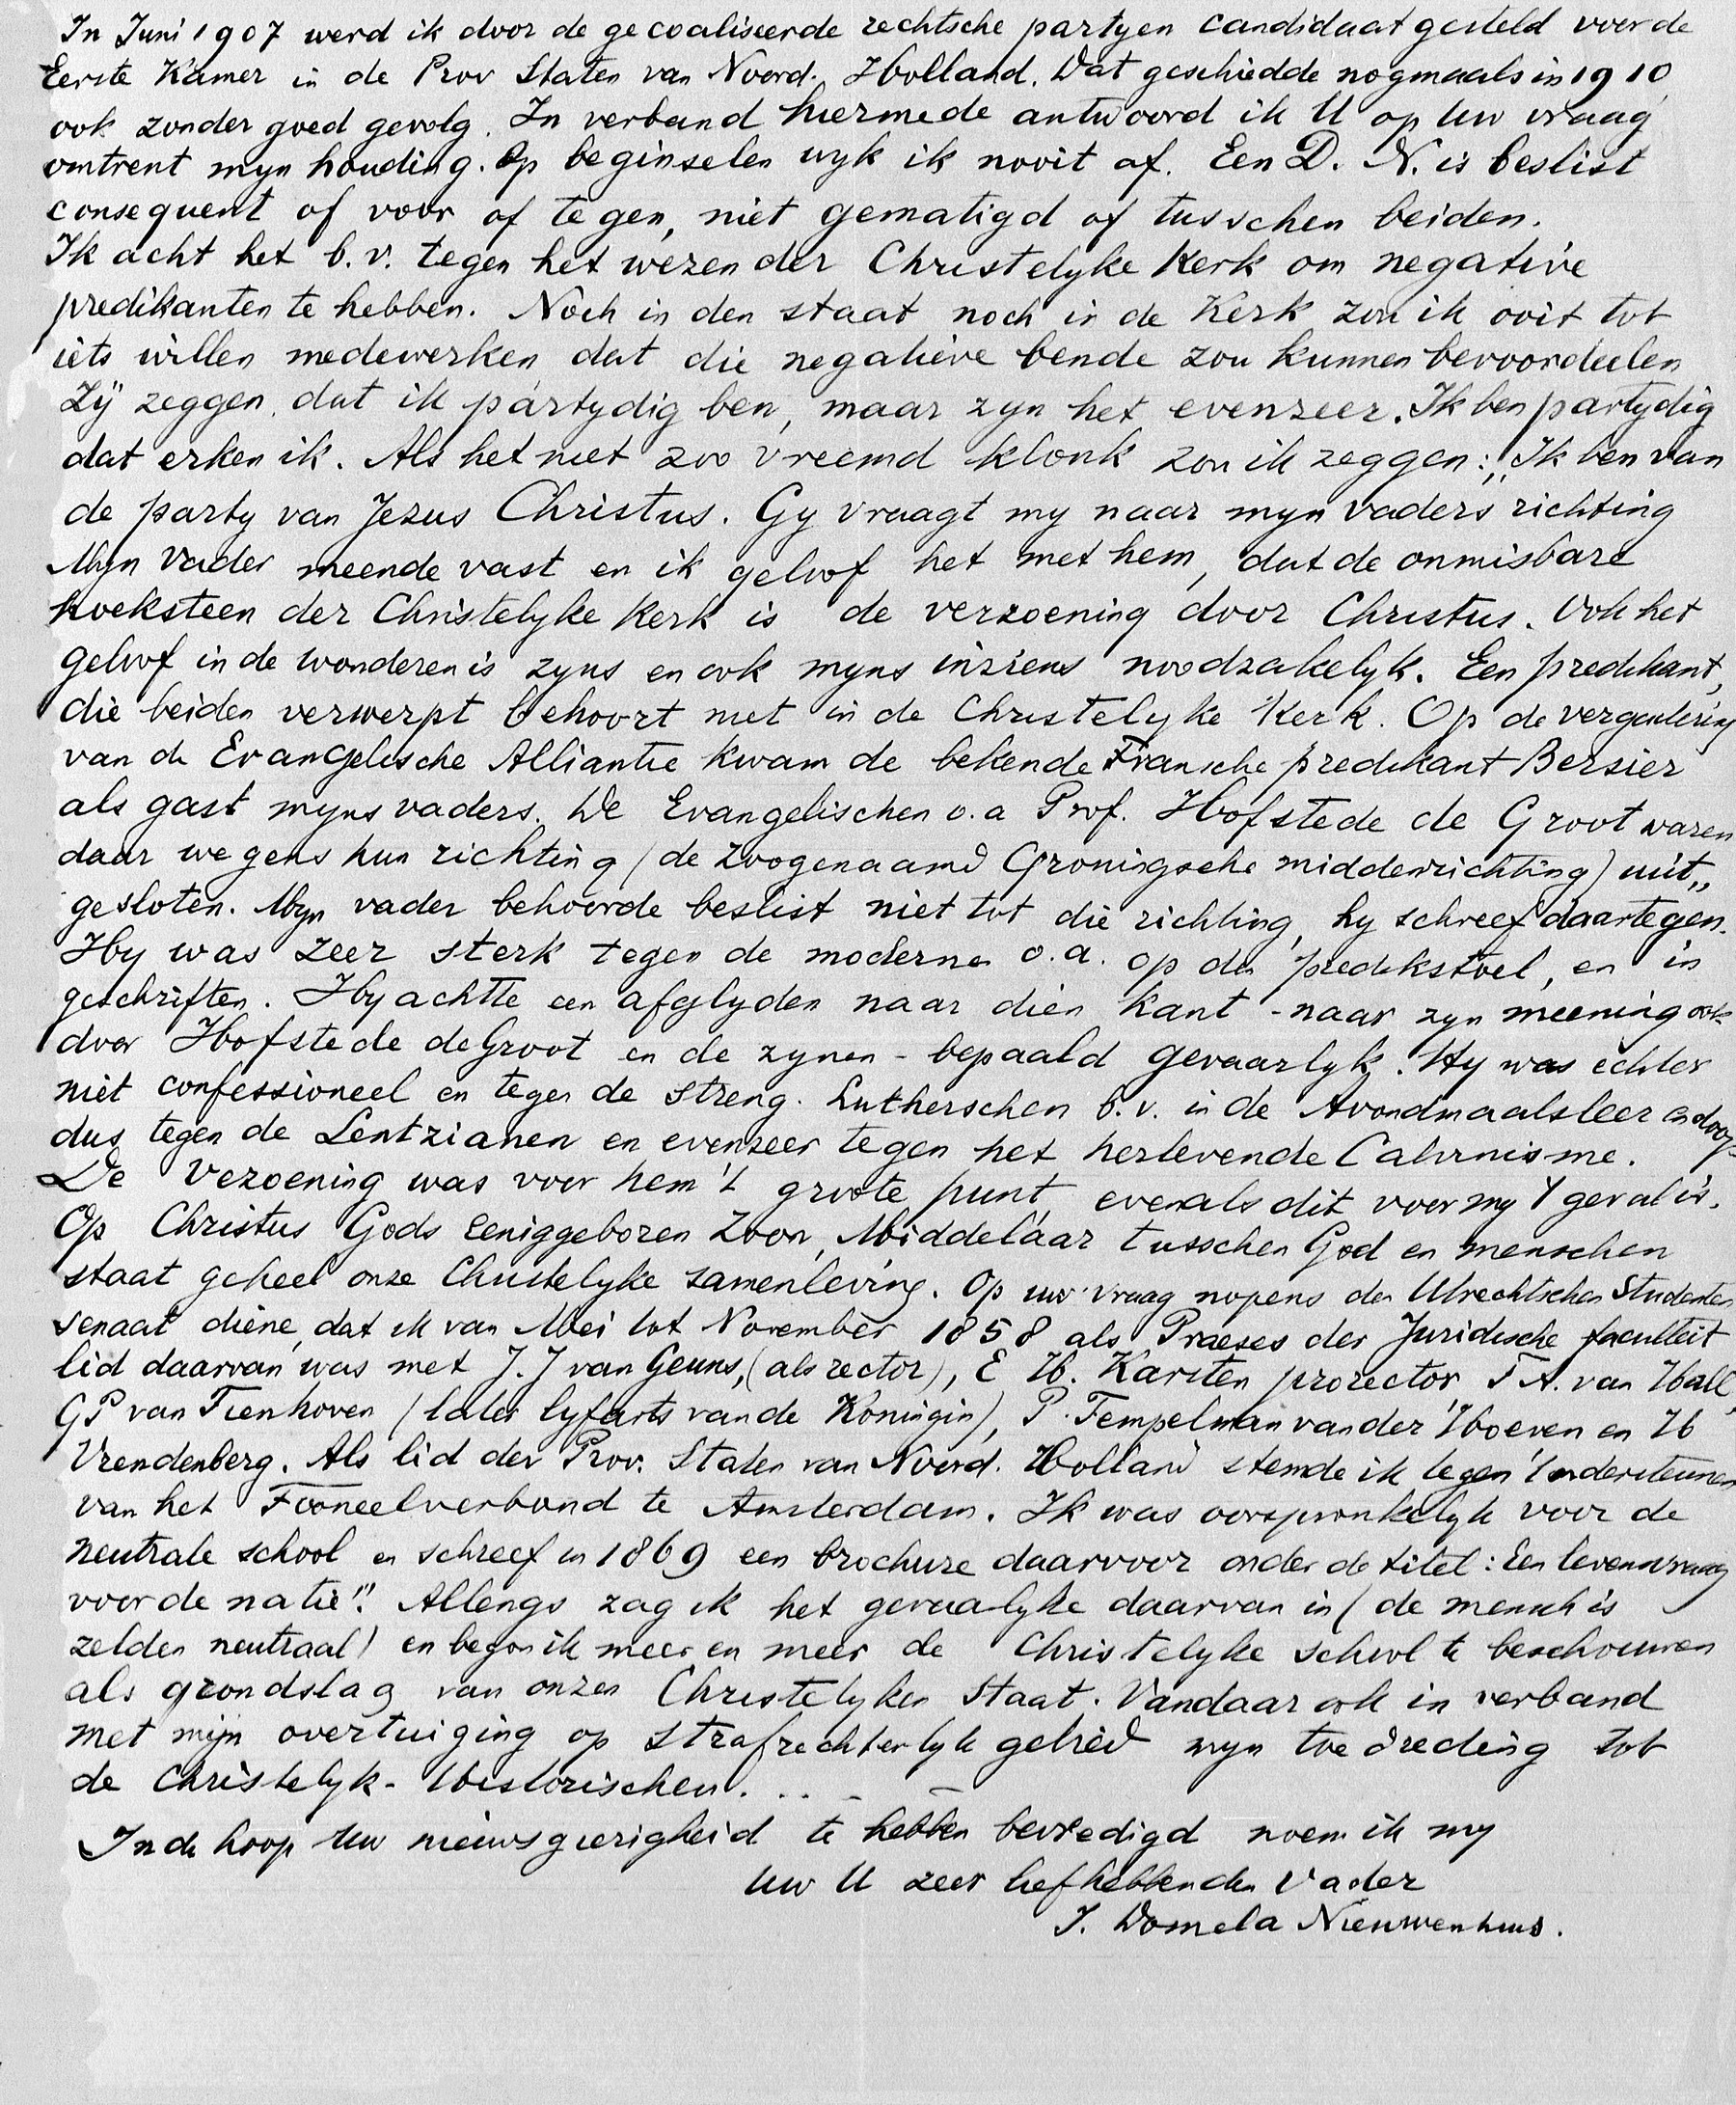 In Juni 1907 werd ik door de gecoaliseerde rechtsche partyen candidaat gesteld voor de
Eerste Kamer in de Prov Staten van Noord. Holland. Dat geschiedde nogmaals in 1910
ook zonder goed gevolg. In verband hiermede antwoord ik U op Uw vraag
omtrent myn houding. Op beginselen wyk ik nooit af. Een D. N. is beslist
consequent of voor of tegen, niet gematigd of tusschen beiden.
Ik acht het b.v. tegen het wezen der Christelyke Kerk om negative
predikanten te hebben. Noch in den staat noch in de Kerk zou ik ooit tot
iets willen medewerken dat die negatieve bende zou kunnen bevoordeelen
Zÿ zeggen, dat ik partydig ben, maar zyn het evenzeer. Ik ben partydig
dat erken ik. Als het niet zoo vreemd klonk zou ik zeggen: „Ik ben van
de party van Jezus Christus. Gy vraagt my naar myn vaders richting
Myn Vader meende vast en ik geloof het met hem, dat de onmisbare
hoeksteen der Christelyke Kerk is de verzoening door Christus. Ook het
geloof in de wonderen is zyns en ook myns inziens noodzakelyk. Een predikant,
die beiden verwerpt behoort niet in de Christelyke Kerk. Op de vergadering
van de Evangelische Alliantie kwam de bekende Fransche predikant Bersier
als gast myns vaders. De Evangelischen o.a Prof. Hofstede de Groot waren
daar wegens hun richting (de zoogenaamd Groningsche middenrichting) uit„
gesloten. Myn vader behoorde beslist niet tot die richting, hy schreef daartegen.
Hy was zeer sterk tegen de moderne o.a. op den predikstoel, en in
geschriften. Hy achtte een afglyden naar dien kant - naar zyn meening ook
door Hofstede de Groot en de zynen - bepaald gevaarlyk. Hy was echter
niet confessioneel en tegen de streng. Lutherschen b.v. in de Avondmaalsleer en doop
dus tegen de Lentzianen en evenzeer tegen het herlevende Calvinisme.
De Vezoening was voor hem 't groote punt, evenals dit voor my 't geval is.
Op Christus Gods Eeniggeboren Zoon, Middelaar tusschen God en menschen
staat geheel onze Christelyke samenleving. Op uw vraag nopens den Utrechtschen Studenten
senaat diene, dat ik van Mei tot November 1858 als Praeses der Juridische faculteit
lid daarvan was met J. J van Geuns, (als rector), E H. Karsten prorector, F A. van Hall,
G P van Tienhoven (later lyfarts van de Koningin), P. Tempelman van der Hoeven en H
Vrendenberg. Als lid der Prov. Staten van Noord. Holland stemde ik tegen 't ondersteunen
van het Tooneelverbond te Amsterdam. Ik was oorspronkelyk voor de
neutrale school en schreef in 1869 een brochure daarvoor onder de titel: Een levensvraag
voor de natie". Allengs zag ik het gevaarlyke daarvan in (de mensch is
zelden neutraal) en begon ik meer en meer de Christelyke school te beschouwen
als grondslag van onzen Christelyken Staat. Vandaar ook in verband
met mijn overtuiging op strafrechterlyk gebied myn toetreding tot
de Christelyk-Historischen. . . -
In de hoop Uw nieuwsgierigheid te hebben bevredigd noem ik my
Uw U zeer liefhebbenden Vader
J. Domela Nieuwenhuis.